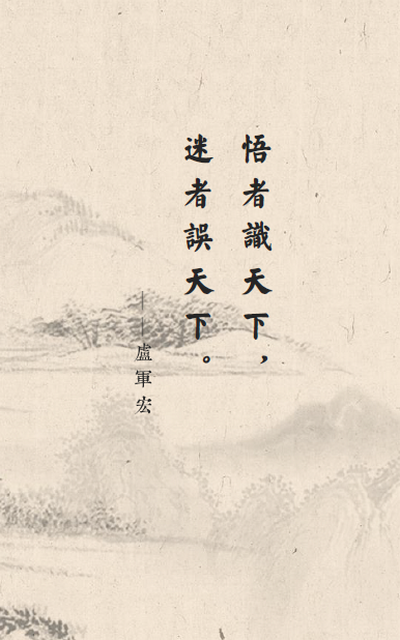 悟者識天下，
迷者誤天下。
——盧軍宏